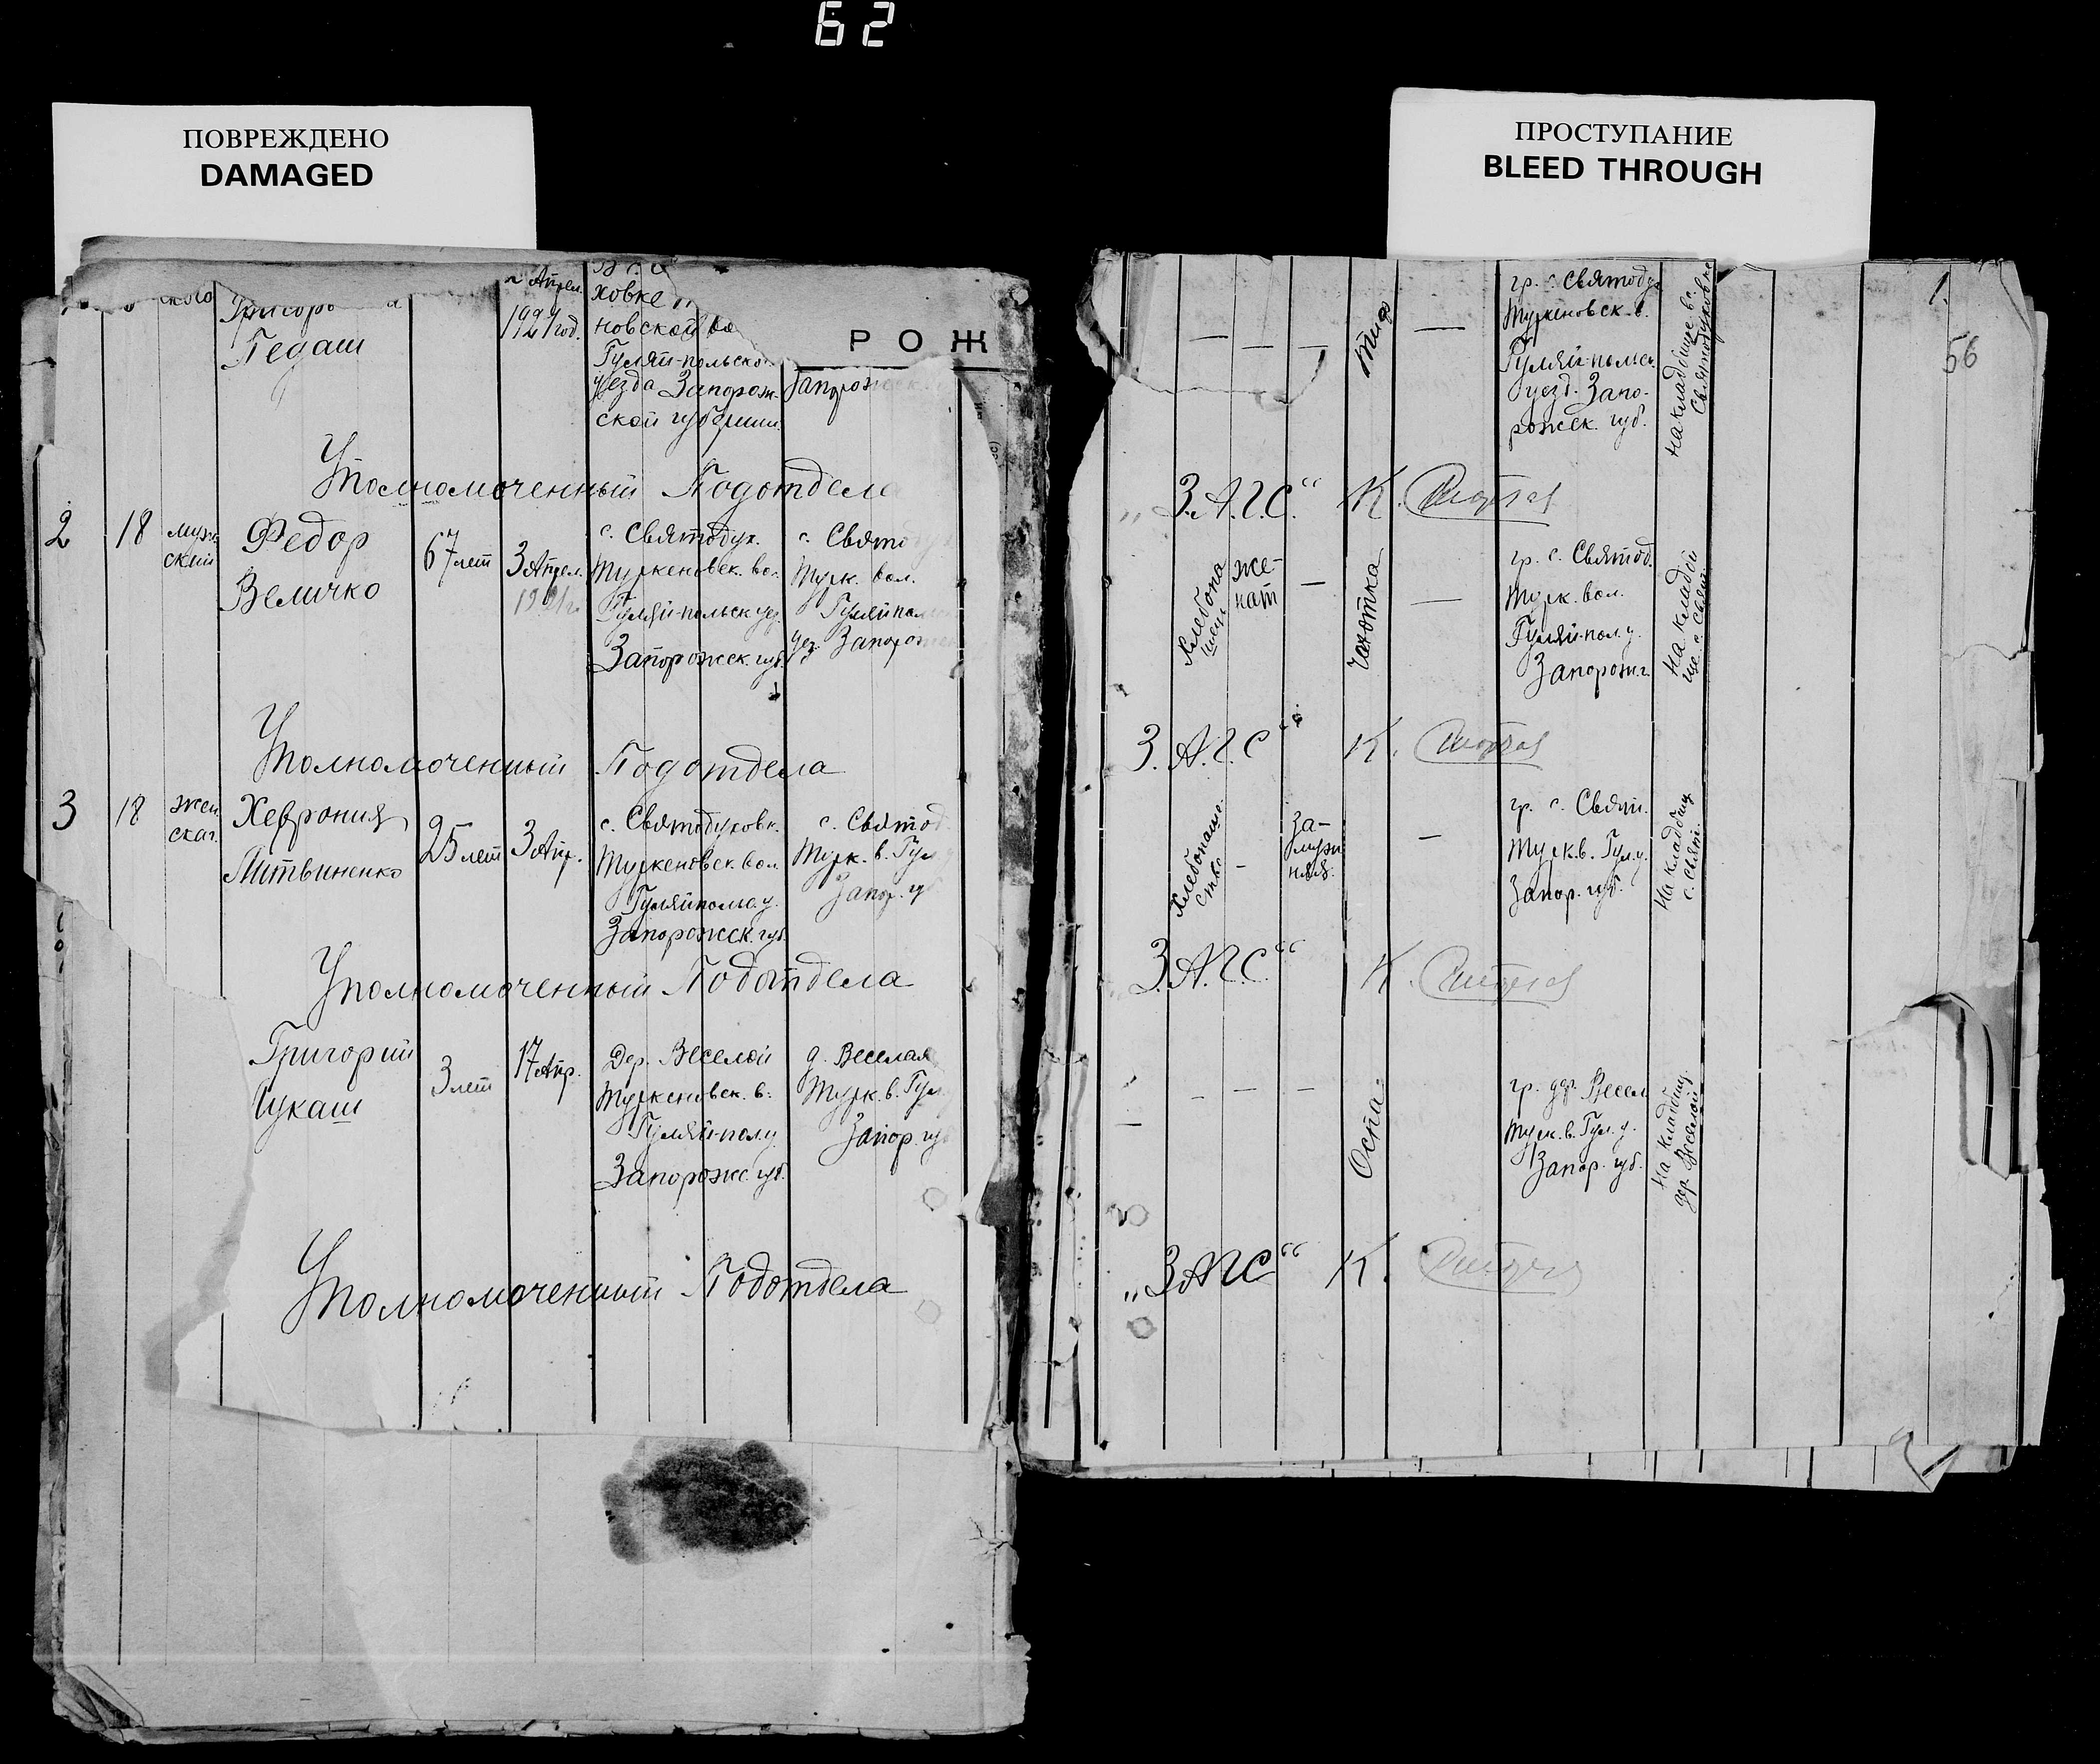 62
ПОВРЕЖДЕНО
DAMAGED
ПРОСТУПАНИЕ
BLEED THROUGH
Гедаш
Апрел.
1921 год.
ховке
новской
Гуляй-польско
уезда Запорож-
ской губернии.
РОЖ
Запорожск
Уполномоченный Подотдела
2
18
муж
ский
Федор
Величко
67 лет
3 Апрел.
с. Святодух.
Туркеновск. во.
Гуляй-польск. уез.
Запорожск. губ.
с. Свято
Турк. вол.
Гуляйпол
уез. Запорож
Уполномоченный Подотдела
3
18
жен
ская.
Хеврония
Литвиненко
25 лет
3 Апр.
с. Святодуховк.
Туркеновск. вол.
Гуляйпол. у.
Запорожск. губ.
с. Святод
Турк. в. Гул
Запор. г
Уполномоченный Подотдела
Григорий
Цукаш
3 лет
17 Апр.
Дер. Веселой
Туркеновск. в.
Гуляй-пол. у
Запорожс. губ.
д. Веселая
Турк. в. Гул
Запор. гу
Уполномоченный Подотдела
1.
56
тиф
гр. с. Святоду
Туркеновск. в.
Гуляй-польск.
уезд. Запо-
рожск. губ.
на кладбище в с.
Святодуховке
„З.А.Г.С.“ К.
Хлебопа
шец
же-
нат
чахотка
гр. с. Святод.
Турк. вол.
Гуляй-пол. у.
Запорож. г.
на кладби
ще с. Свят.
З.А.Г.С“ К.
Хлебопаше.
ство
за-
муж
няя.
гр. с. Свят.
Турк. в. Гул. у.
Запор. губ.
на кладбищ
с. Свят.
З.А.Г.С.“ К.
Оспа.
гр. дер. Весел
Турк. в. Гул. у.
Запор. губ.
на кладбищ.
дер. Веселой
„ЗАГС“ К.